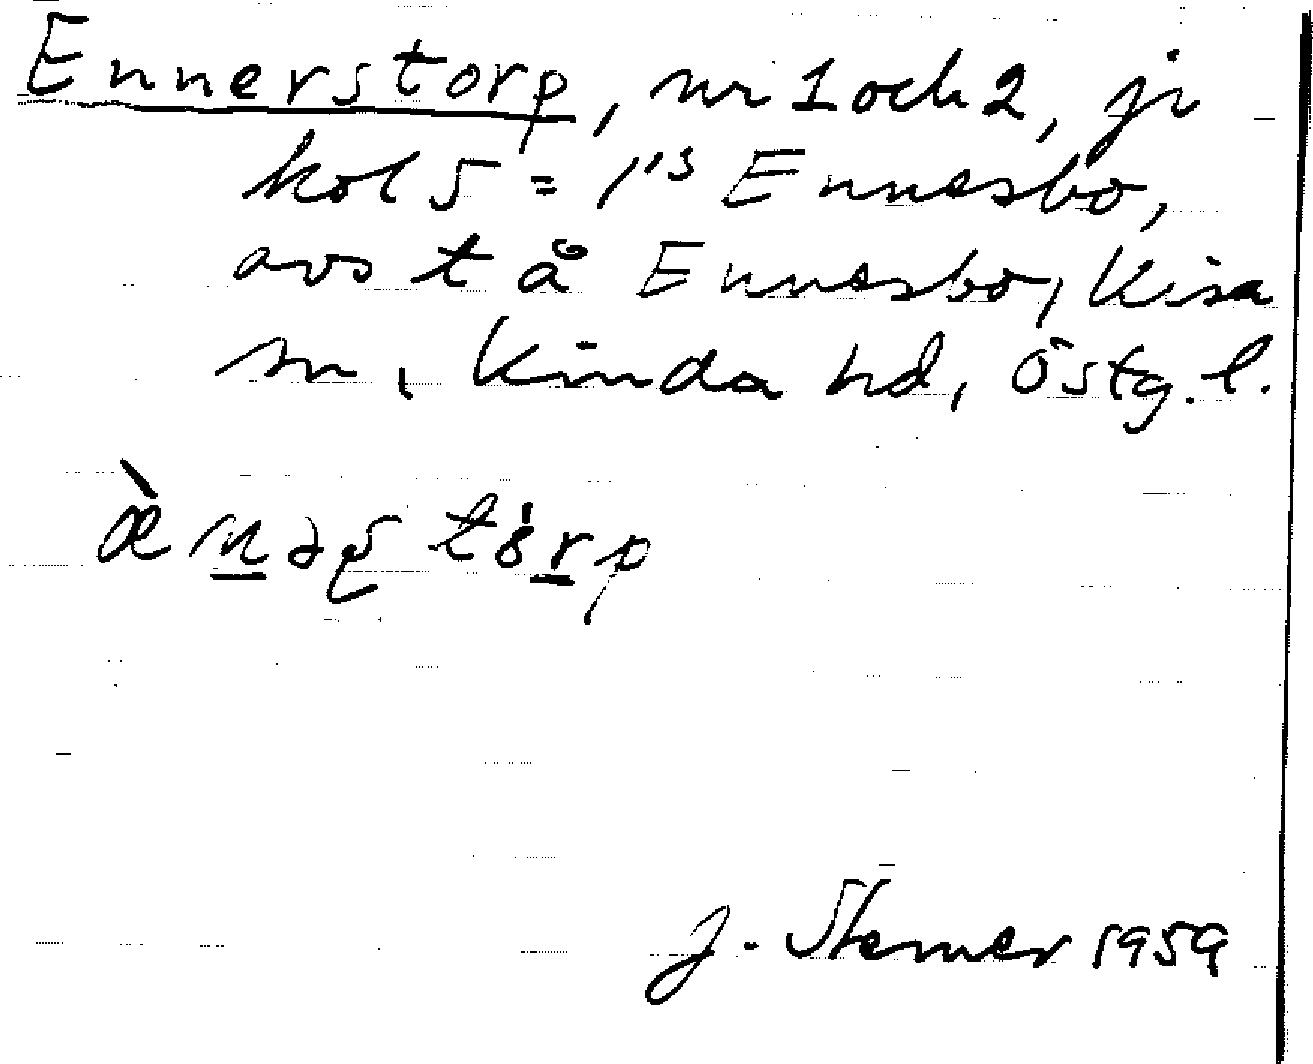 Ennerstorp, nr 1 och 2, ji
kol 5 = 1's Ennesbo,
avs t å Ennesbo, Kisa
sn, Kinda hd, Östg. l.
J. Sterner 1959